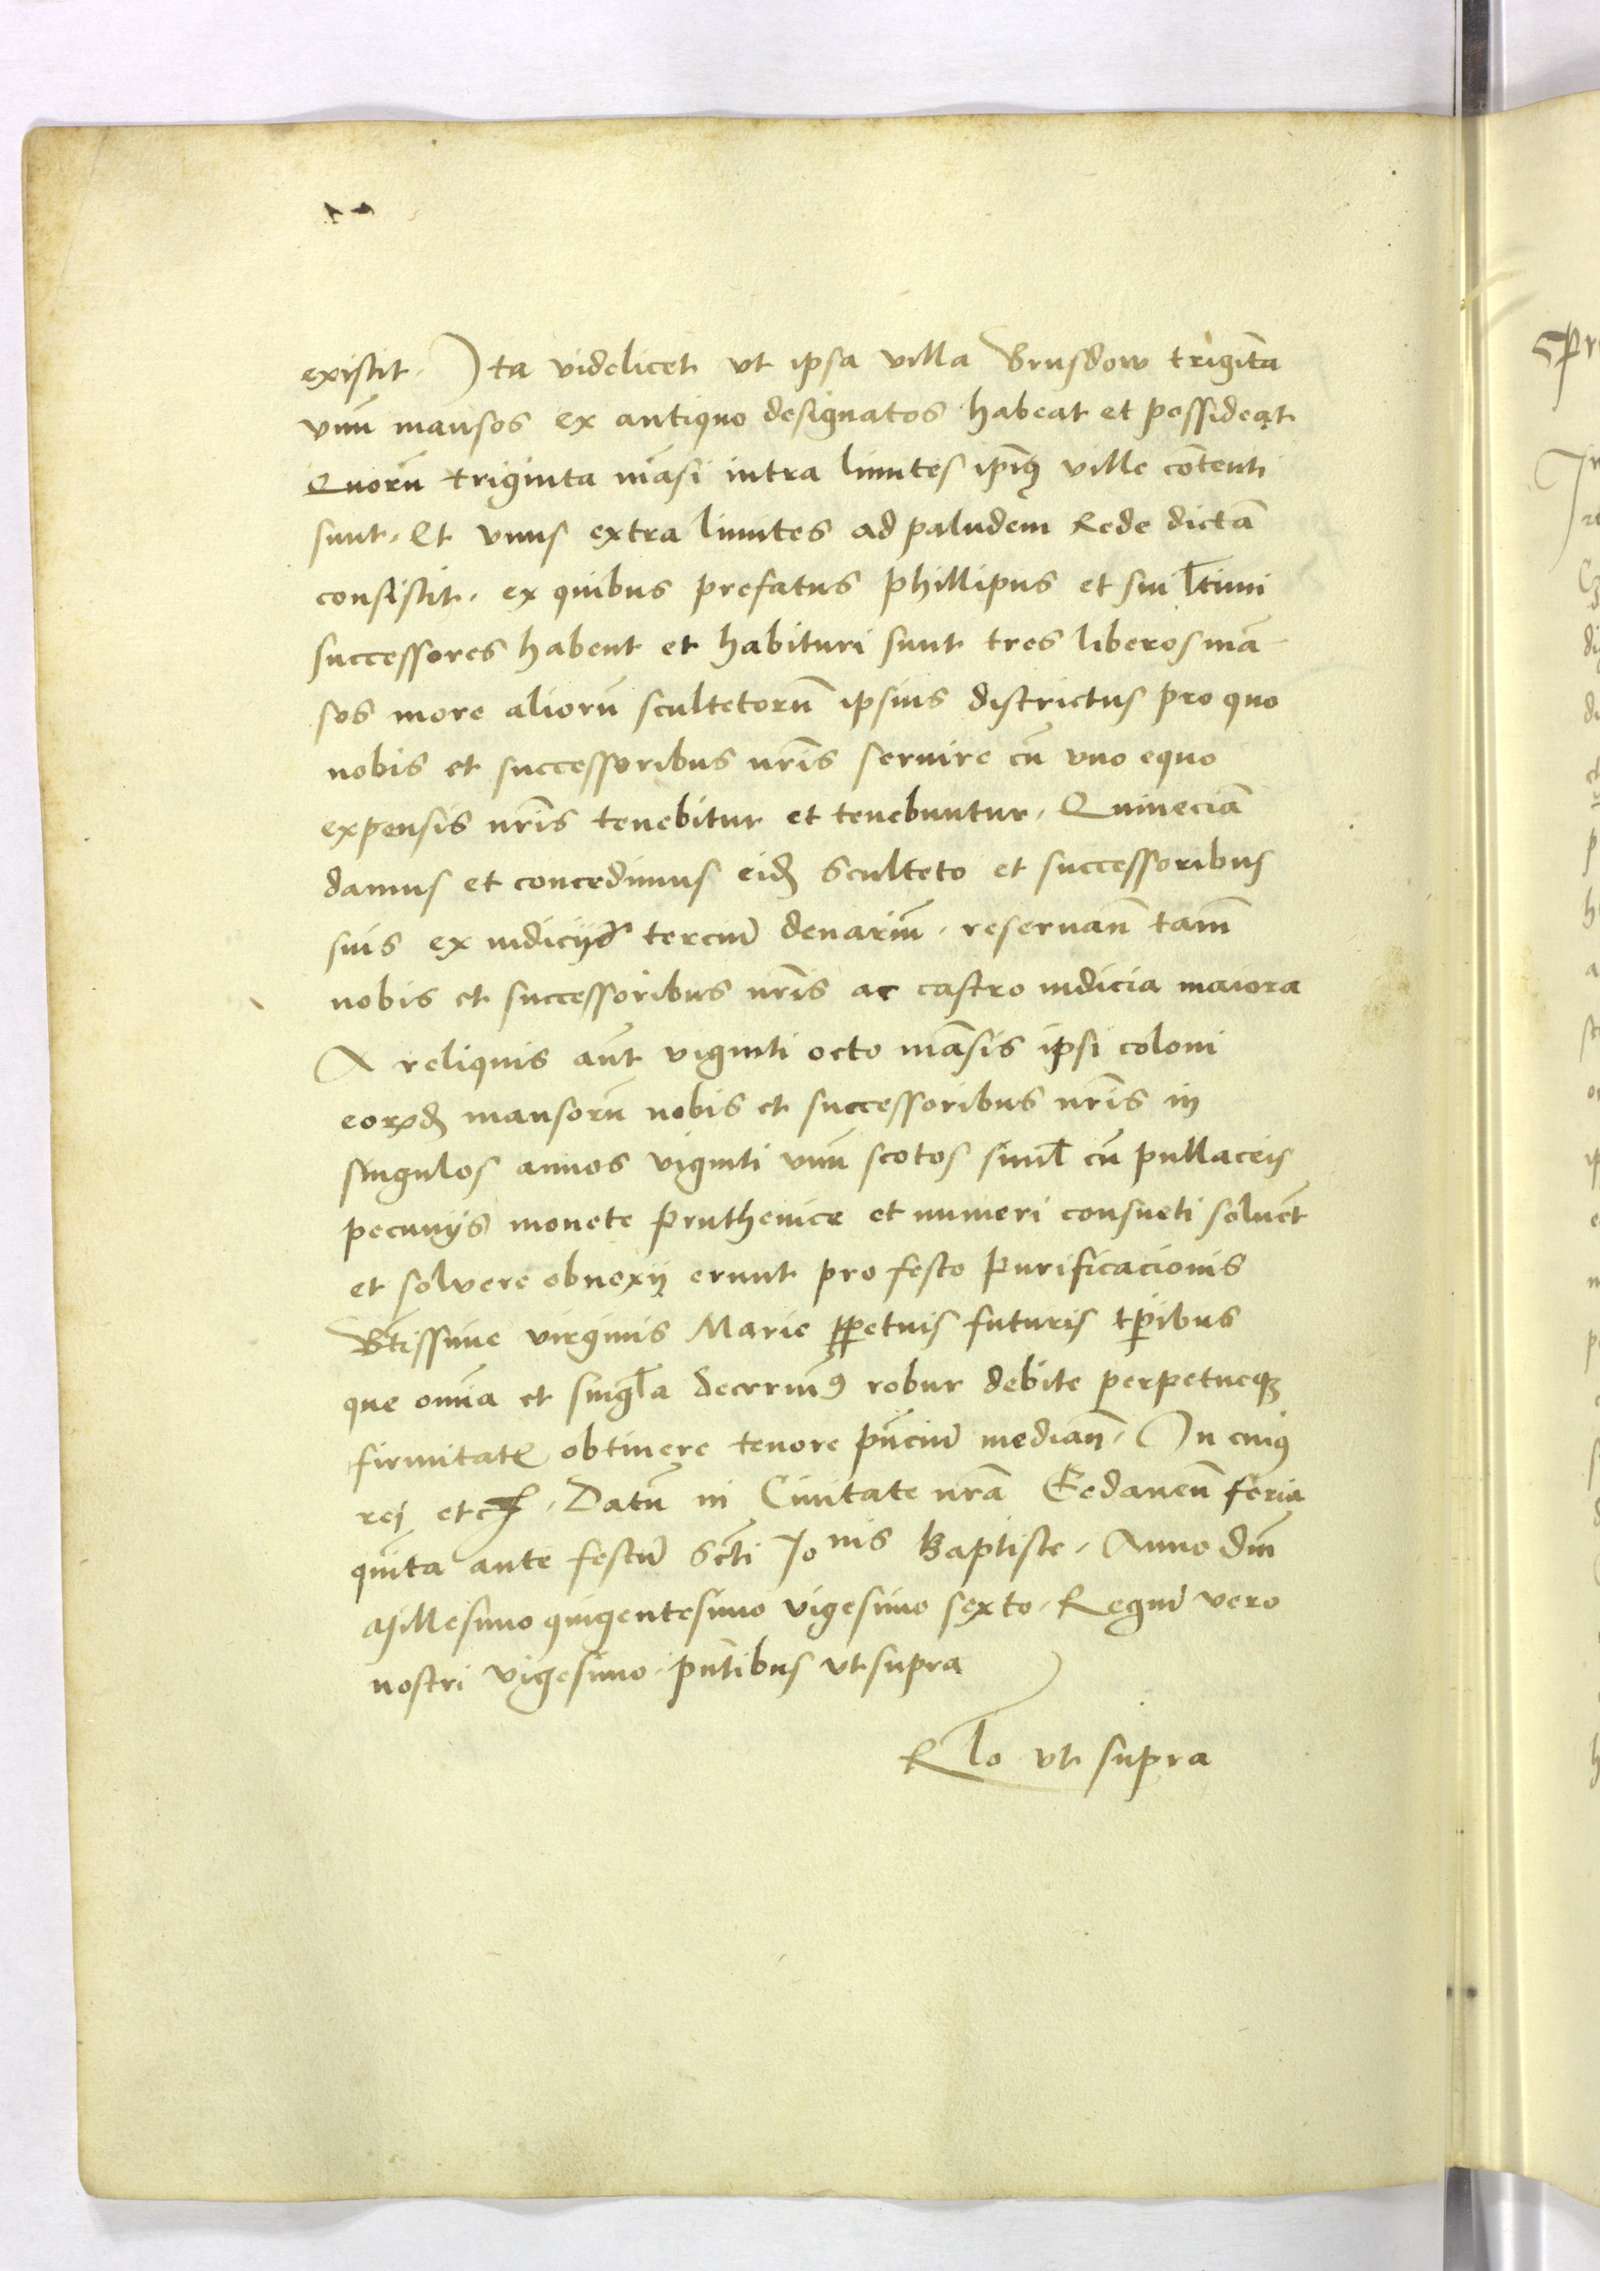 existit. Ita videlicet vt ipsa villa Brusdow trigīta
vnū mansos ex antiquo designatos habeat et possideat
Quorū triginta māsi intra limites ip̄iꝰ ville cōtenti
sunt. Et vnus extra limites ad paludem Rede dictā
consistit. ex quibus prefatus phillipus et sui l̄timi
successores habent et habituri sunt tres liberos mā
sos more aliorū scultetorū ipsius districtus pro quo
nobis et successoribus nr̄is seruire cū vno equo
expensis nr̄is tenebitur et tenebuntur. Quineciā
damus et concedimus eidꝫ Sculteto et successoribus
suis ex iudicijs terciū denariū. reseruan̄ tam̄
nobis et successoribus nr̄is ac castro iudicia maiora
A reliquis aūt viginti octo māsis ipsi coloni
eorꝝdꝫ mansorū nobis et successoribus nr̄is in
singulos annos viginti vnū scotos simꝉ cū pullaceis
pecunijs monete pruthenice et numeri consueti soluēt
et solvere obnoxij erunt pro festo Purificacionis
Btīssime virginis Marie ꝑpetuis futuris tp̄ibus
que om̄ia et singꝉa decernimꝰ robur debite perpetueqꝫ
firmitatꝭ obtinere tenore pn̄ciū median̄. In cuiꝰ
rei etcꝭ. Datū in Ciuitate nr̄a Gedanen̄ feria
quīta ante festū Scti Jo nis Baptiste. Anno dn̄i
Millesimo quigentesimo vigesimo sexto. Regni vero
nostri vigesimo. pn̄tibus vt supra
Rꝉo vt supra